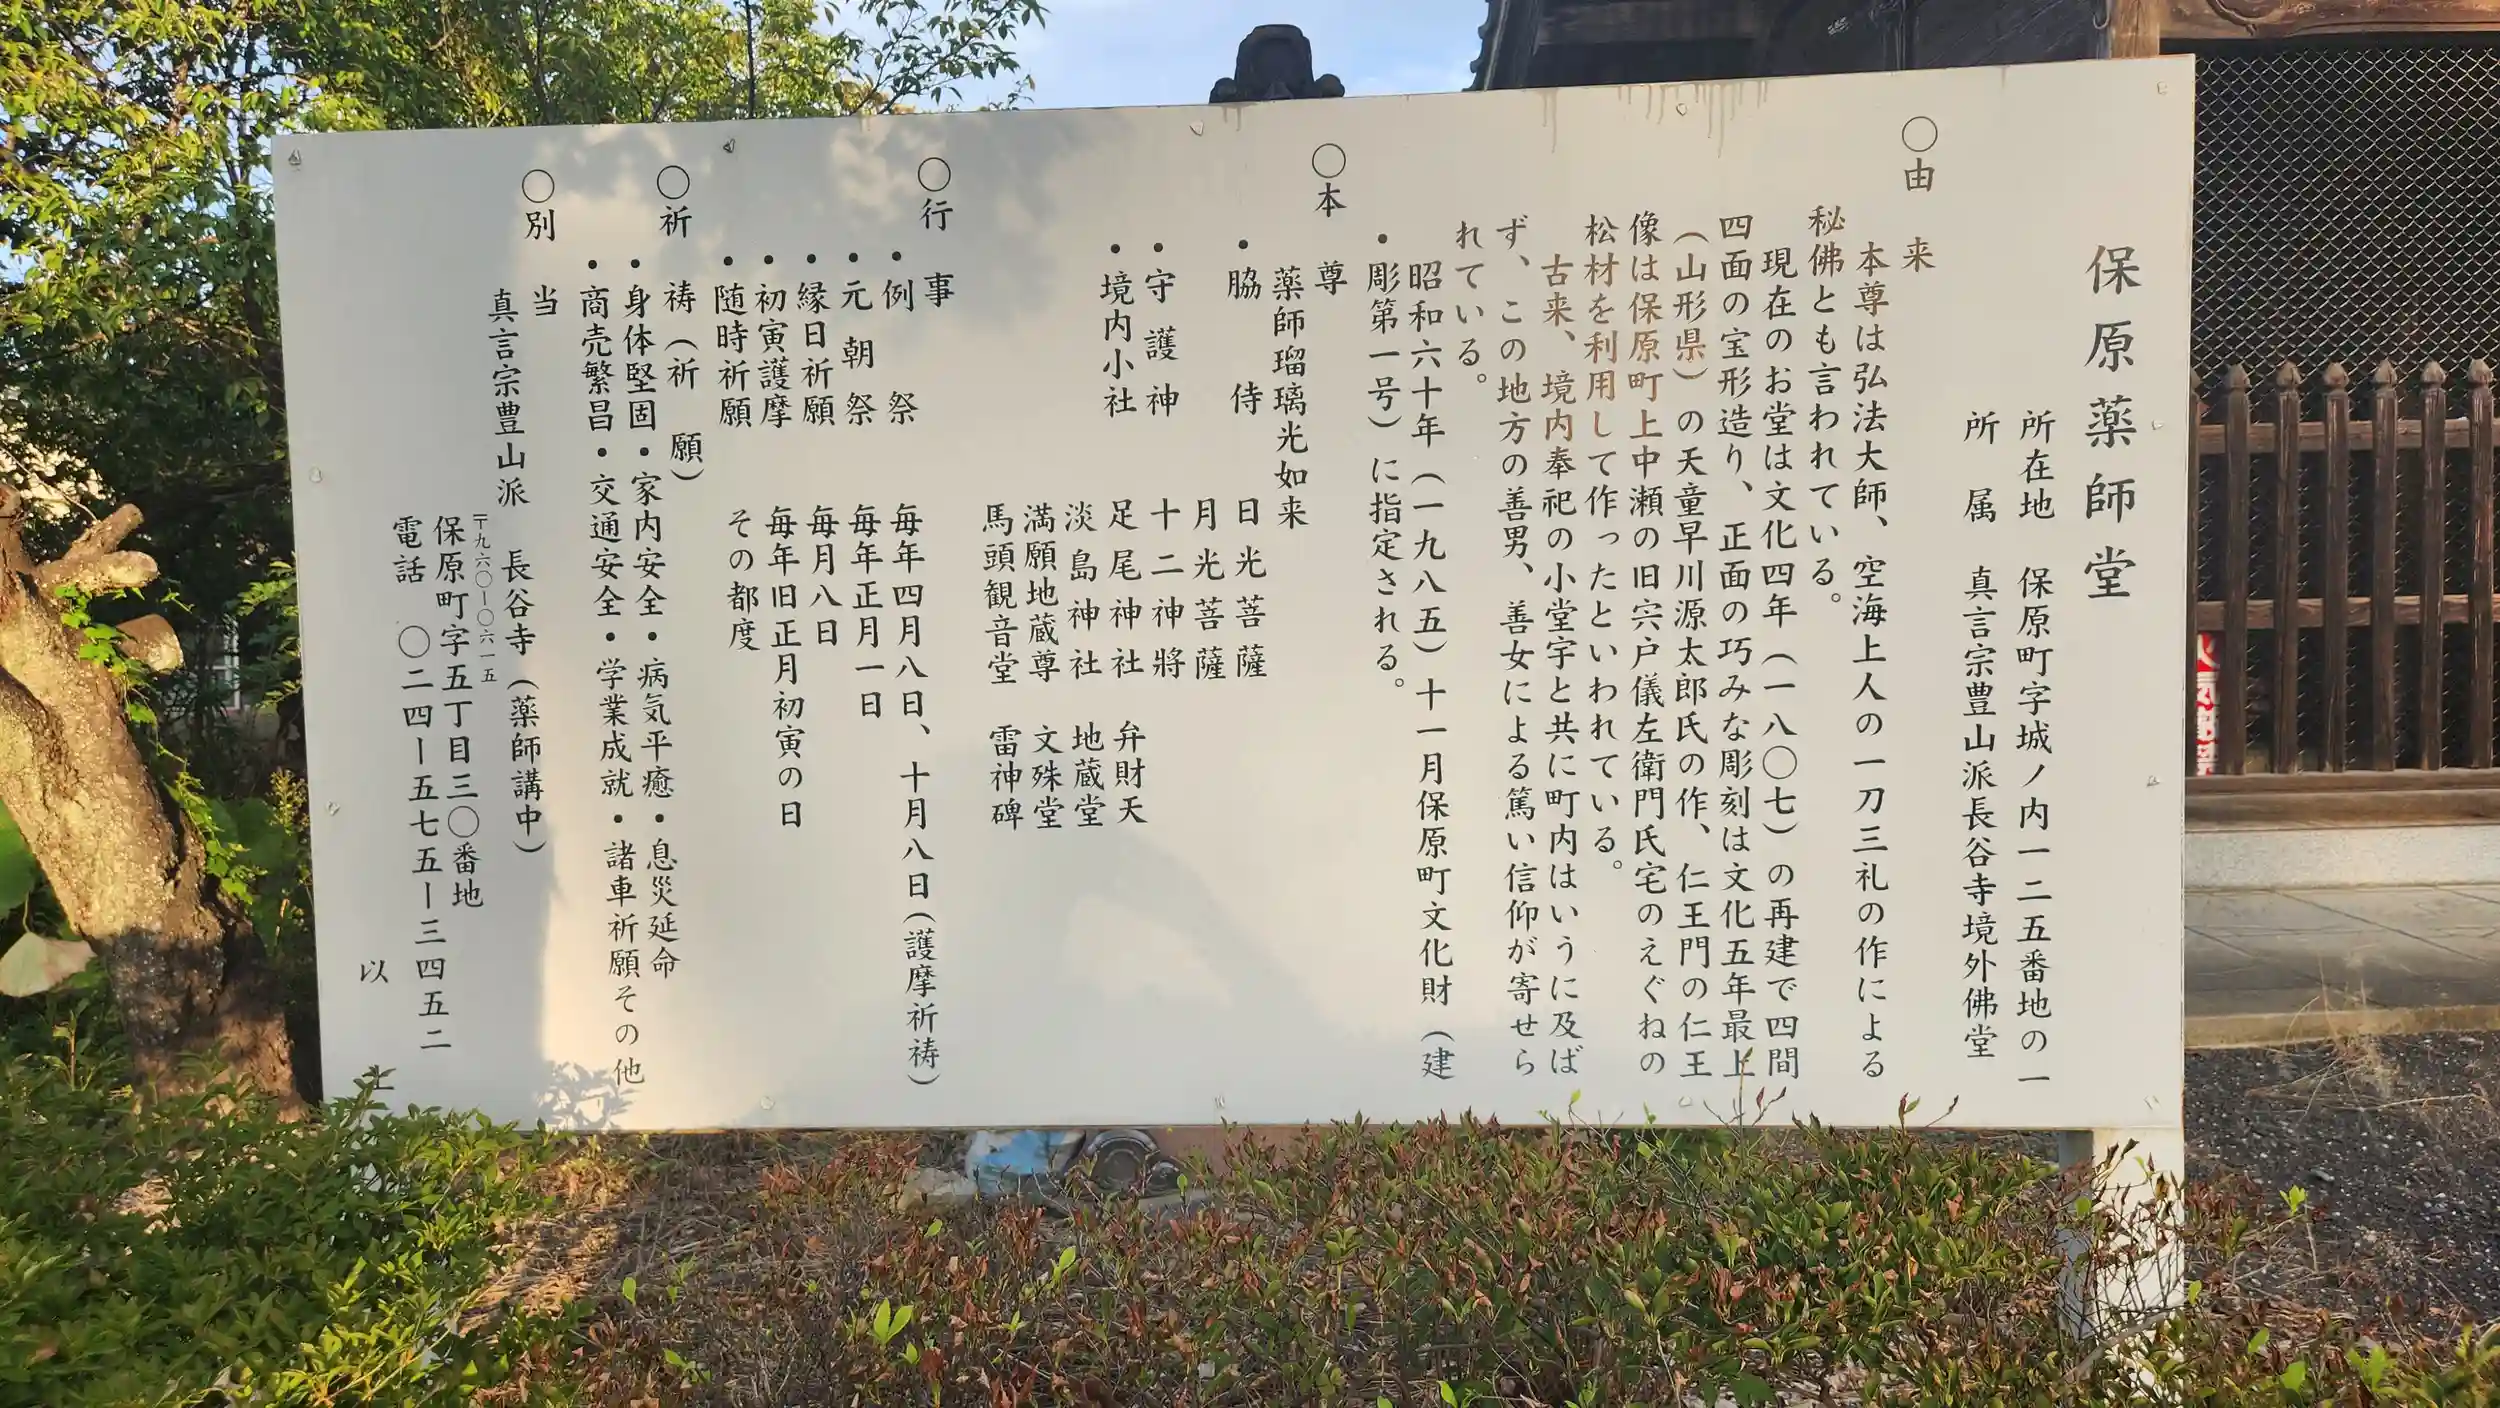 保原薬師堂
所在地 保原町字城ノ内一二五番地の一
所属 真言宗豊山派長谷寺境外佛堂
〇由来
本尊は弘法大師、空海上人の一刀三礼の作による
秘佛とも言われている。
現在のお堂は文化四年（一八〇七）の再建で四間
四面の宝形造り、正面の巧みな彫刻は文化五年最上
（山形県）の天童早川源太郎氏の作、仁王門の仁王
像は保原町上中瀬の旧宍戸儀左衛門氏宅のえぐねの
松材を利用して作ったといわれている。
古来、境内奉祀の小堂宇と共に町内はいうに及ば
ず、この地方の善男、善女による篤い信仰が寄せら
れている。
昭和六十年（一九八五）十一月保原町文化財（建
・彫第一号）に指定される。
〇本尊
薬師瑠璃光如来
・脇侍 日光菩薩
月光菩薩
・守護神 十二神將
・境内小社 足尾神社 弁財天
淡島神社 地蔵堂
満願地蔵尊 文殊堂
馬頭観音堂 雷神碑
〇行事
・例祭 毎年四月八日、十月八日（護摩祈祷）
・元朝祭 毎年正月一日
・縁日祈願 毎月八日
・初寅護摩 毎年旧正月初寅の日
・随時祈願 その都度
〇祈祷（祈願）
・身体堅固・家内安全・病気平癒・息災延命
・商売繁昌・交通安全・学業成就・諸車祈願その他
〇別当
真言宗豊山派 長谷寺（薬師講中）
〒九六〇ー〇六一五
保原町字五丁目三〇番地
電話 〇二四ー五七五ー三四五二
以上